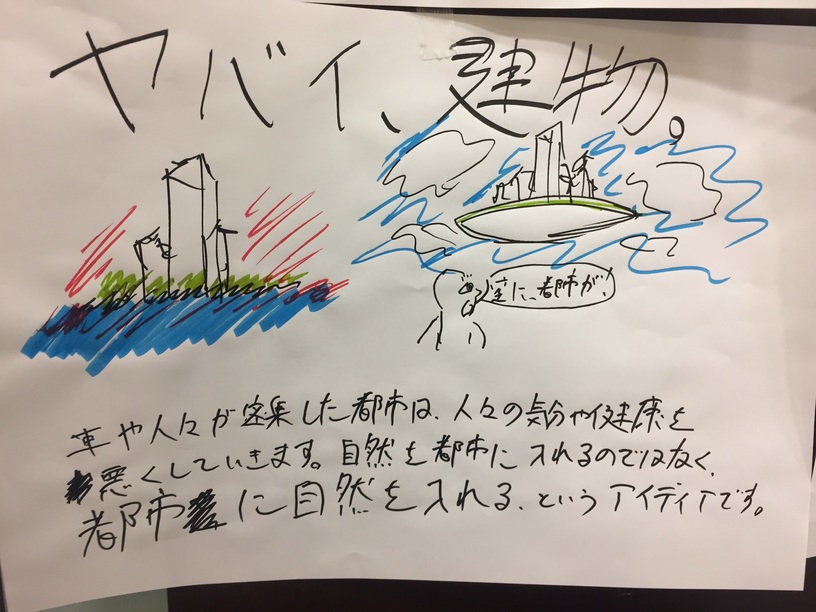 ヤバイ、建物。
空に、都市が!
車や人々が密集した都市は、人々の気分や健康を
悪くしていきます。自然を都市に入れるのではなく、
都市に自然を入れる、というアイディアです。